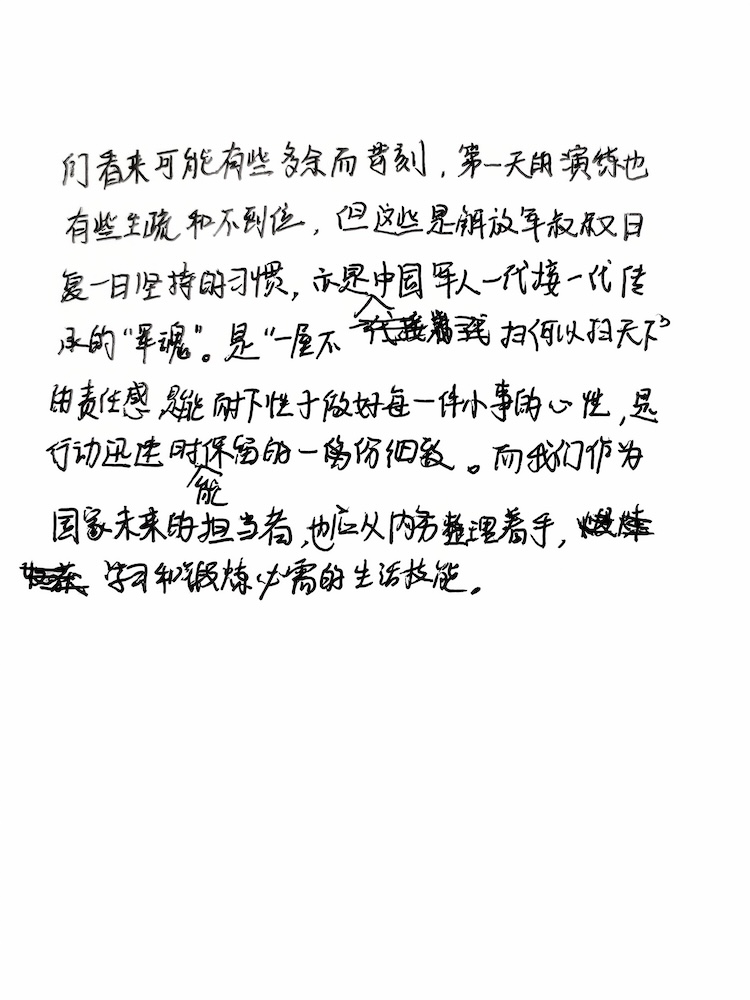 们看来可能有些多余而苛刻，第一天的演练也
有些生疏和不到位，但这些是解放军叔叔日
复一日坚持的习惯，亦是中国军人一代接一代传
承的“军魂”。是“一屋不扫何以扫天下”
的责任感，是能耐下性子做好每一件小事的心性，是
行动迅速时能保留的一份细致。而我们作为
国家未来的担当者，也应从内务整理着手，
学习和锻炼必需的生活技能。